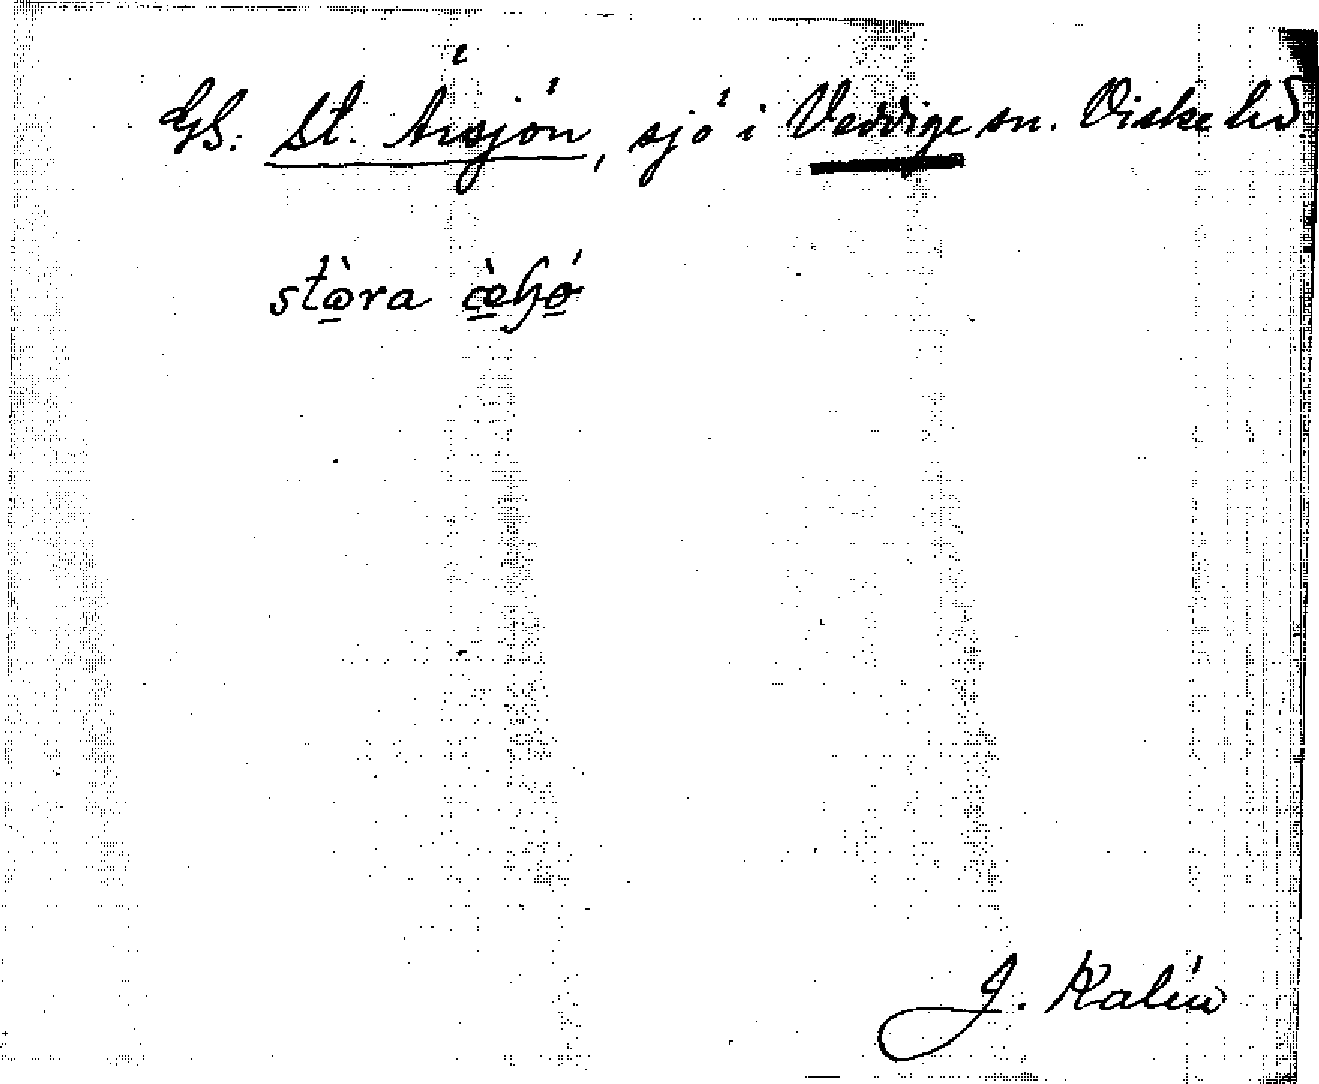 GS: St. Ärsjön, sjö i Veddige sn. Viske hd
stora
J. Kalén